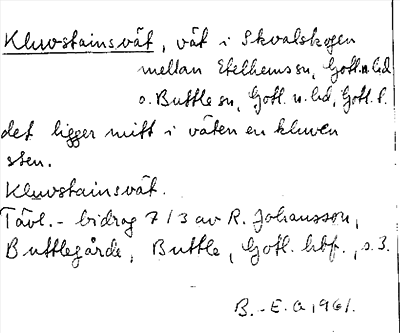 Kluvstainsvät, vät i Skvalskogen
mellan Etelhems sn, Gotl. n. hd
o. Buttle sn, Gotl. n. hd, Gotl. l.
det ligger mitt i väten en kluven
sten.
Kluvstainsvät.
Tävl.- bidrag 7/3 av R. Johansson,
Buttlegårde, Buttle, Gotl. hbf., s. 3.
B.-E. G, 1961.